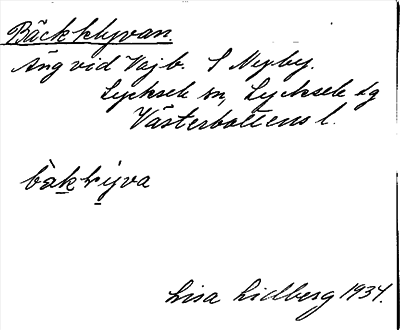 Bäckklyvan.
Äng vid Vajb. l Nyby.
Lycksele sn, Lycksele sg
Västerbottens l.
Lisa Lidberg 1934.